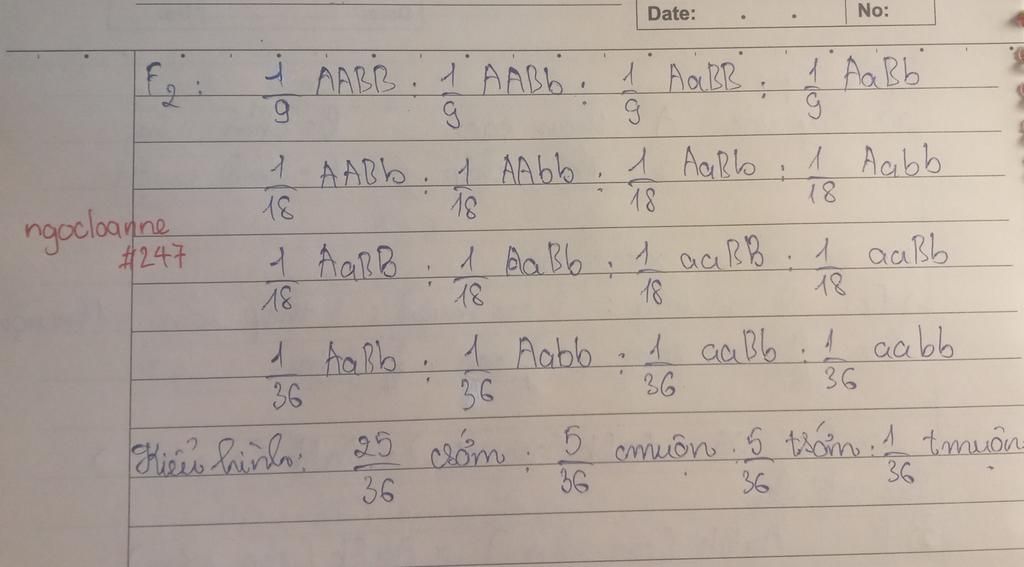 Date: . . No:
F₂: 1/9 AABB : 1/9 AABb : 1/9 AaBB : 1/9 AaBb
1/18 AABb : 1/18 AAbb : 1/18 AaBb : 1/18 Aabb
ngocloanne
#247
1/18 AaBB : 1/18 AaBb : 1/18 aaBB : 1/18 aaBb
1/36 AaBb : 1/36 Aabb : 1/36 aaBb : 1/36 aabb
Kiểu hình: 25/36 csớm : 5/36 cmuộn : 5/36 tsớm : 1/36 tmuộn